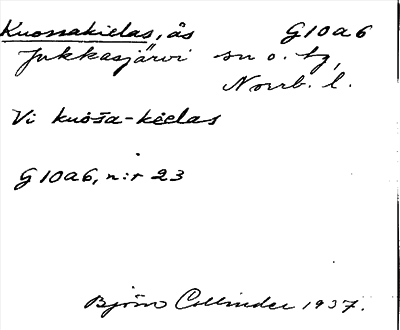 Kuossakielas, ås G10a6
Jukkasjärvi sn o. tg,
Norrb. l.
Vi kuōša-kēelas
G10a6, n:r 23
Björn Collinder 1937.